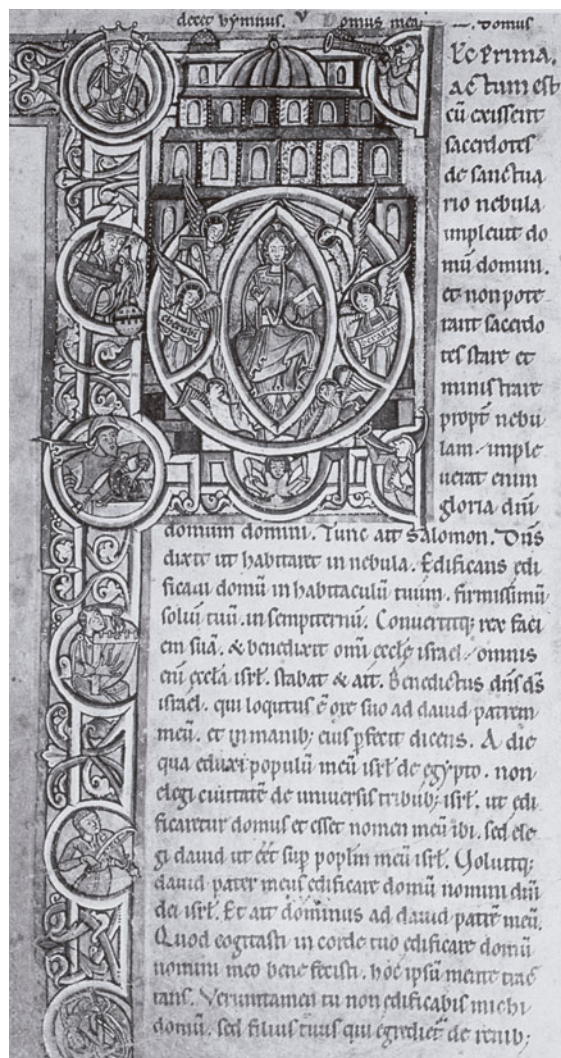 decet hymnus. V Domus mea — . domus
Lc Prima.
actum est
cū exissent
sacerdotes
de sanctua
rio nebula
impleuit do
mū domini.
et non pote
rant sacerdo
tes stare et
ministrare
propt̄ nebu
lam. imple
uerat enim
gloria dn̄i
domum domini. Tunc ait Salomon. Dn̄s
dixit ut habitaret in nebula. Edificans edi
ficaui domū in habitaculū tuum. firmissimū
soliū tuū. in sempiternū. Conuertitq; rex faci
em suā. & benedixit omi eccl̄e israel. omnis
eni eccl̄a isrl̄. stabat & ait. Benedictus dn̄s ds̄
israel. qui loqutus ē ore suo ad dauid patrem
meū. et in manib; eius pfecit dicens. A die
qua eduxi populū meū isrl̄ de egypto. non
elegi ciuitatē de uniuersis tribub; isrl̄. ut edi
ficaretur domus et esset nomen meū ibi. sed ele
gi dauid ut eēt sup poplm meū isrl̄. Voluitq;
dauid pater meus edificare domū nomini dn̄i
dei isrl̄. Et ait dominus ad dauid patrē meū.
Quod cogitasti in corde tuo edificare domū
nomini meo bene fecisti. hoc ipsū mente trac
tans. Veruntamen tu non edificabis michi
domū. sed filius tuus qui egrediet̄ de renib;